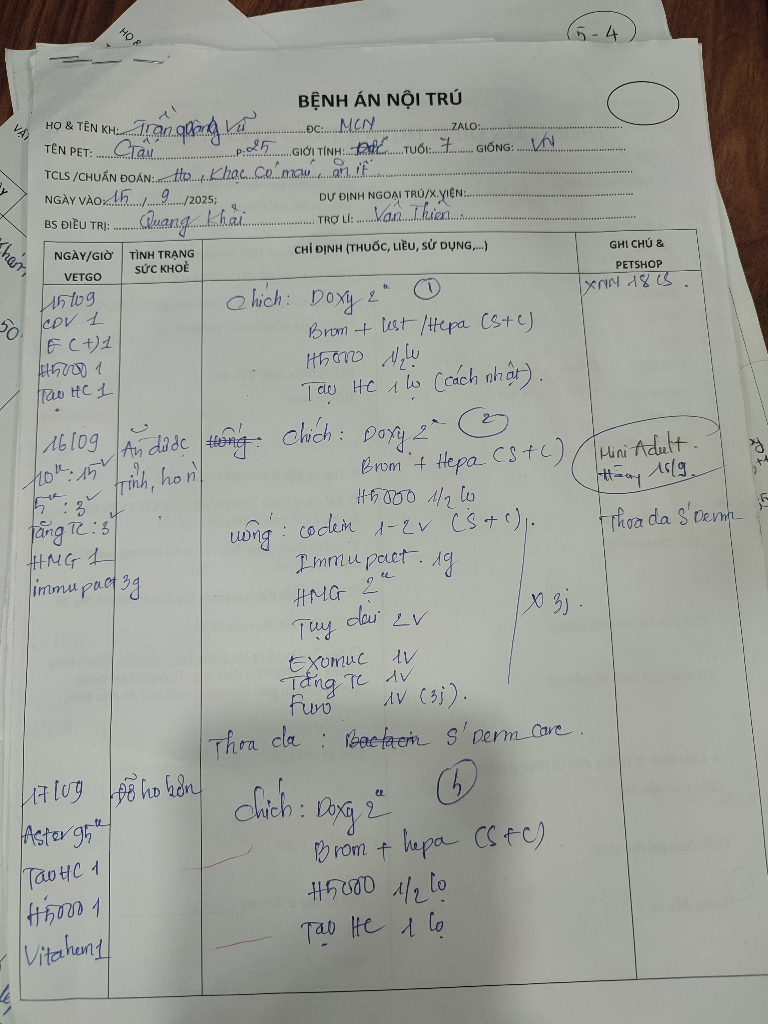 HỌ &
5-4
BỆNH ÁN NỘI TRÚ
HỌ & TÊN KH: Trần Quang Vũ ĐC: MCN ZALO:
TÊN PET: Gấu P: 25 GIỚI TÍNH: TUỔI: 7 GIỐNG: VN
TCLS/CHUẨN ĐOÁN: Ho, Khạc có máu, ăn ít
NGÀY VÀO: 15 / 9 /2025; DỰ ĐỊNH NGOẠI TRÚ/X.VIỆN:
BS ĐIỀU TRỊ: Quang Khải TRỢ LÍ: Văn Thiên
NGÀY/GIỜ VETGO
TÌNH TRẠNG SỨC KHOẺ
CHỈ ĐỊNH (THUỐC, LIỀU, SỬ DỤNG,...)
GHI CHÚ & PETSHOP
15/09
CDV 1
E (+) 1
H5000 1
Tạo HC 1
Chích: Doxy 2ᵃ 1
Brom + Lest /Hepa (S+C)
H5000 1/2 lọ
Tạo HC 1 lọ (cách nhật).
XNM 18 CS.
16/09
10ᵃ: 15ᵛ
5ᵃ: 3ᵛ
Tăng TC: 3ᵛ
HMG 1
immupact 3g
Ăn được
Tỉnh, ho n
Uống: Chích: Doxy 2ᵃ 2
Brom + Hepa (S+C)
H5000 1/2 lọ
Uống: codein 1-2v (S+C).
Immupact. 1g
HMG 2ᵃ
Tuy dài 2V
Exomuc 1V
Tăng TC 1V
Furo 1V (3j).
x 3j.
Thoa da : S'Derm Care.
Mini Adult.
16/9.
Thoa da S'Derm
17/09
Aster 95ᵃ
Tạo HC 1
H5000 1
Vitahem 1
Đỡ ho hơn
Chích: Doxy 2ᵃ
Brom + hepa (S+C)
H5000 1/2 lọ
Tạo HC 1 lọ